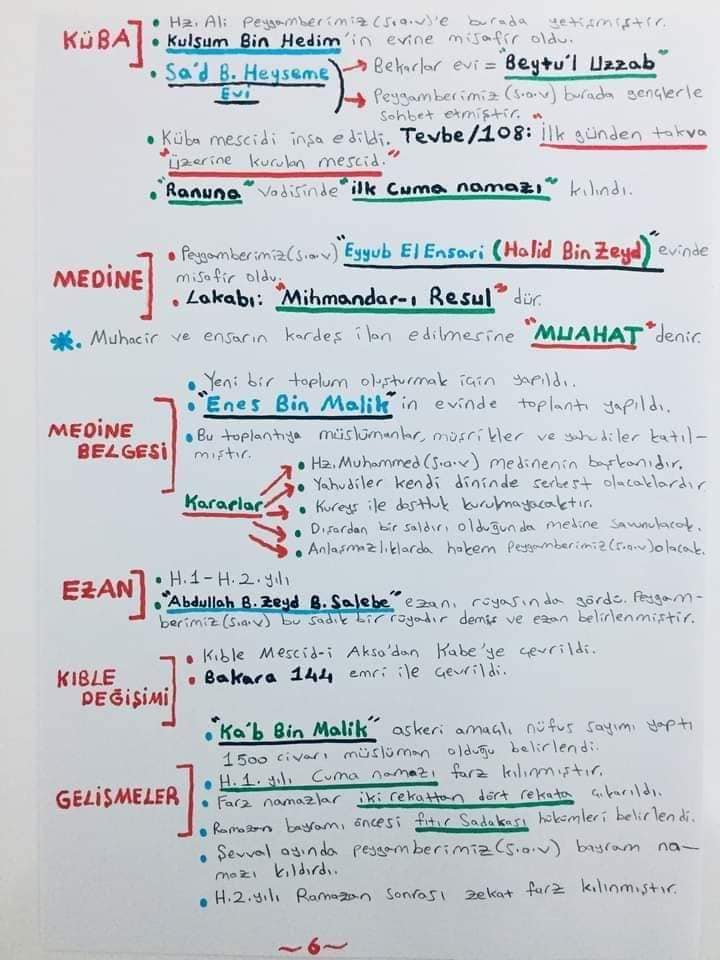 KÜBA
• Hz. Ali Peygamberimiz(s.a.v)'e burada yetişmiştir.
• Kulsum Bin Hedim'in evine misafir oldu.
• Sa'd B. Heyseme Evi
→ Bekarlar evi = "Beytu'l Uzzab"
→ Peygamberimiz(s.a.v) burada gençlerle
sohbet etmiştir.
• Küba mescidi inşa edildi. Tevbe/108: "İlk günden takva
"üzerine kurulan mescid."
• "Ranuna" vadisinde "ilk Cuma namazı" kılındı.
MEDİNE
• Peygamberimiz(s.a.v) "Eyyub El Ensari (Halid Bin Zeyd)" evinde
misafir oldu.
• Lakabı: "Mihmandar-ı Resul" dür.
* • Muhacir ve ensarın kardeş ilan edilmesine "MUAHAT" denir.
MEDİNE BELGESİ
• Yeni bir toplum oluşturmak için yapıldı.
• "Enes Bin Malik" in evinde toplantı yapıldı.
• Bu toplantıya müslümanlar, müşrikler ve yahudiler katıl-
mıştır.
Kararlar
• Hz. Muhammed(s.a.v) medinenin başkanıdır.
• Yahudiler kendi dininde serbest olacaklardır.
• Kureyş ile dostluk kurulmayacaktır.
• Dışardan bir saldırı olduğunda medine savunulacak.
• Anlaşmazlıklarda hakem Peygamberimiz(s.a.v) olacak.
EZAN
• H.1 - H.2. yılı
• "Abdullah B. Zeyd B. Salebe" ezanı rüyasında gördü. Peygam-
berimiz(s.a.v) bu sadık bir rüyadır demiş ve ezan belirlenmiştir.
KIBLE DEĞİŞİMİ
• Kıble Mescid-i Aksa'dan Kabe'ye çevrildi.
• Bakara 144 emri ile çevrildi.
GELİŞMELER
• "Ka'b Bin Malik" askeri amaçlı nüfus sayımı yaptı
1500 civarı müslüman olduğu belirlendi.
• H.1. yılı Cuma namazı farz kılınmıştır.
• Farz namazlar iki rekattan dört rekata çıkarıldı.
• Ramazan bayramı öncesi fıtır Sadakası hükümleri belirlendi.
• Şevval ayında peygamberimiz(s.a.v) bayram na-
mazı kıldırdı.
• H.2. yılı Ramazan sonrası zekat farz kılınmıştır.
~6~